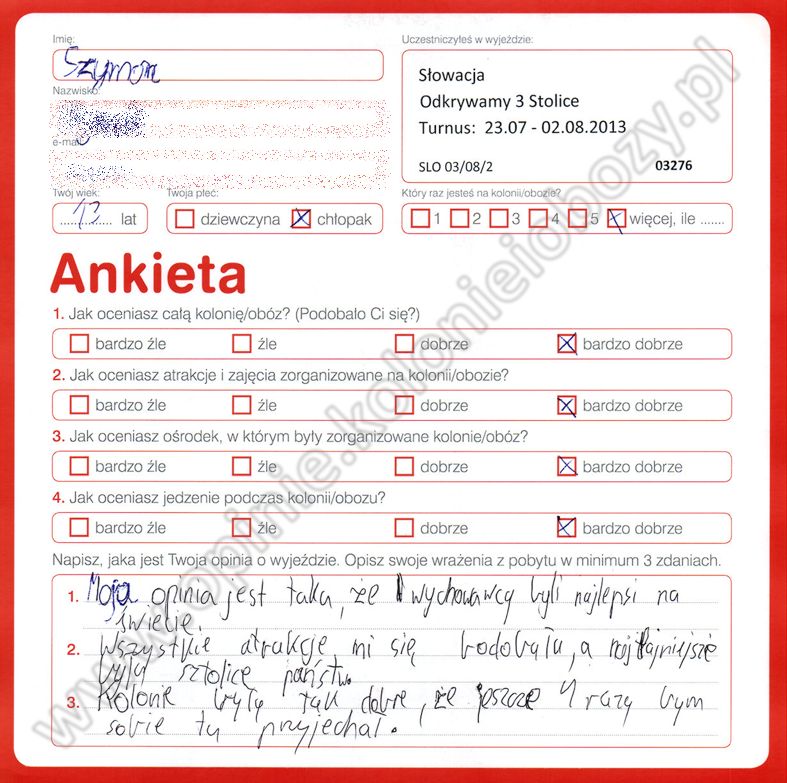 Imię:
Szymon
Nazwisko:
e-mail:
Twój wiek:
13 lat
Twoja płeć:
dziewczyna chłopak
Uczestniczyłeś w wyjeździe:
Słowacja
Odkrywamy 3 Stolice
Turnus: 23.07 - 02.08.2013
SLO 03/08/2 03276
Który raz jesteś na kolonii/obozie?
1 2 3 4 5 więcej, ile .......
Ankieta
1. Jak oceniasz całą kolonię/obóz? (Podobało Ci się?)
bardzo źle źle dobrze bardzo dobrze
2. Jak oceniasz atrakcje i zajęcia zorganizowane na kolonii/obozie?
bardzo źle źle dobrze bardzo dobrze
3. Jak oceniasz ośrodek, w którym były zorganizowane kolonie/obóz?
bardzo źle źle dobrze bardzo dobrze
4. Jak oceniasz jedzenie podczas kolonii/obozu?
bardzo źle źle dobrze bardzo dobrze
Napisz, jaka jest Twoja opinia o wyjeździe. Opisz swoje wrażenia z pobytu w minimum 3 zdaniach.
1. Moja opinia jest taka, że wychowawcy byli najlepsi na
świecie.
2. Wszystkie atrakcje mi się podobały, a najfajniejsze
były sztolice państw.
3. Kolonie były tak dobre, że jeszcze 4 razy bym
sobie tu przyjechał.
www.opinie.kolonieiobozy.pl